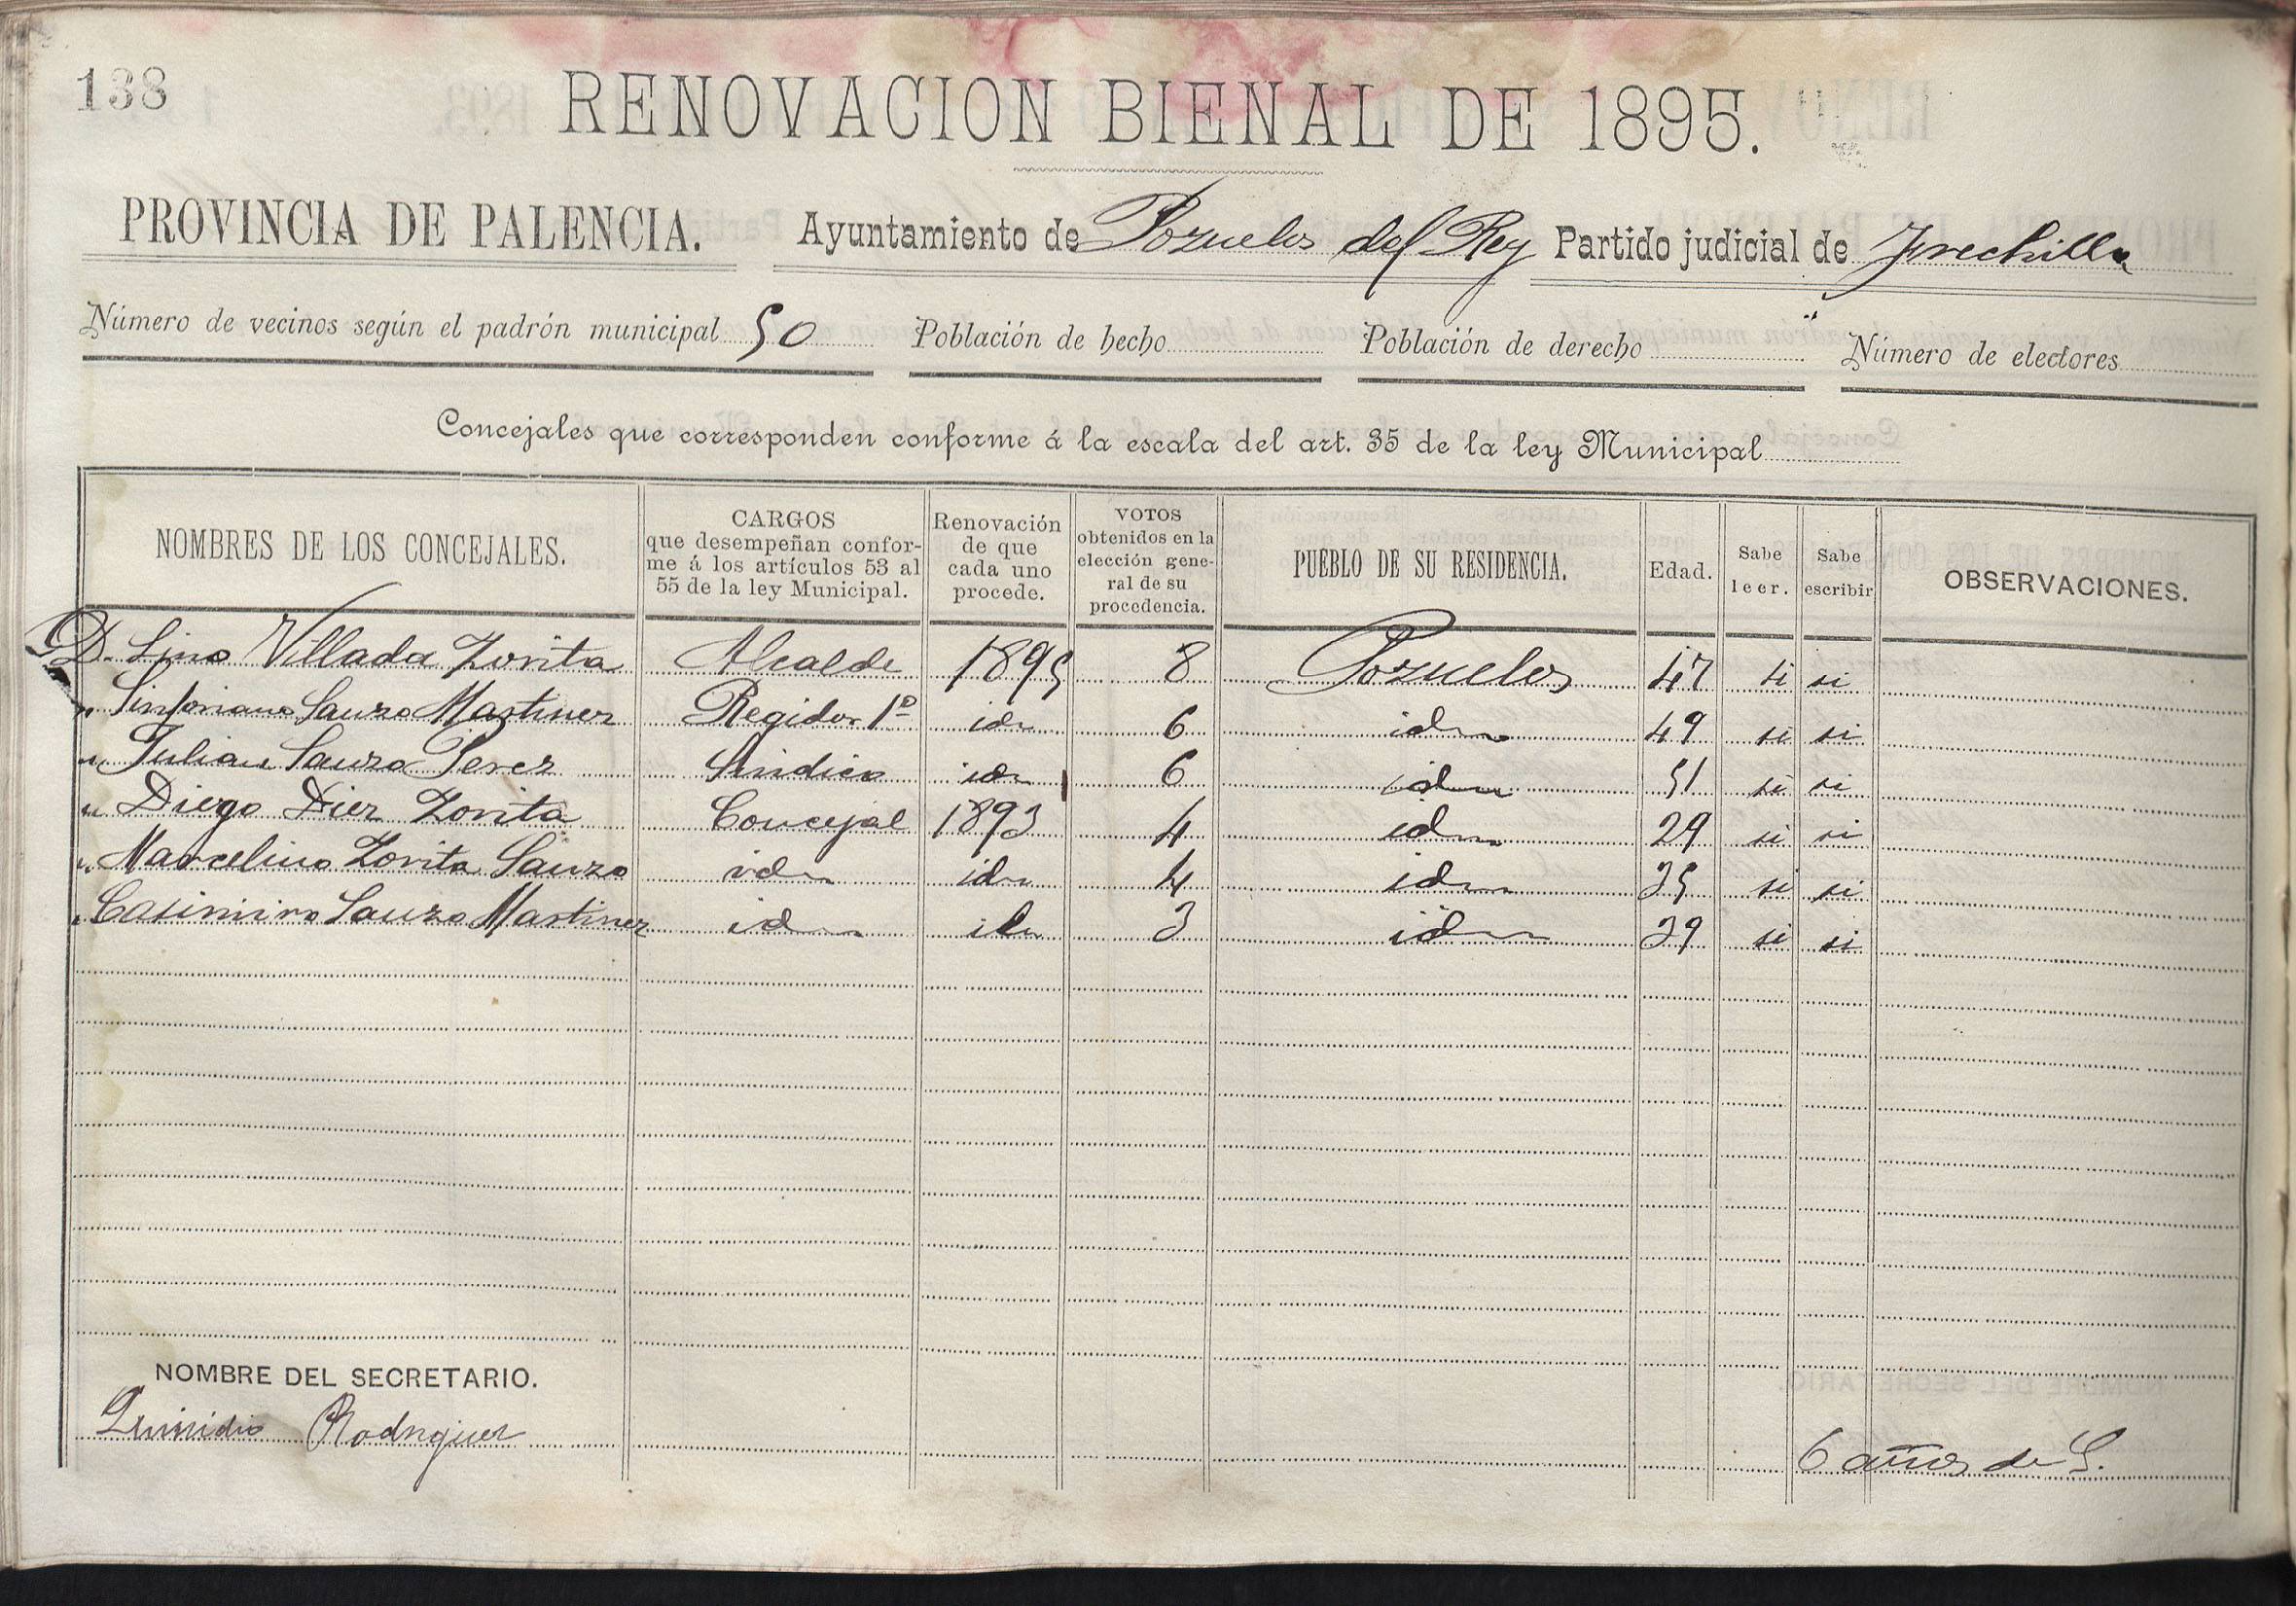 138
RENOVACION BIENAL DE 1895.
PROVINCIA DE PALENCIA. Ayuntamiento de Pozuelos del Rey Partido judicial de Frechilla
Número de vecinos según el padrón municipal 50 Población de hecho Población de derecho Número de electores
Concejales que corresponden conforme á la escala del art. 35 de la ley Municipal
NOMBRES DE LOS CONCEJALES. CARGOS que desempeñan conforme á los artículos 53 al 55 de la ley Municipal. Renovación de que cada uno procede. VOTOS obtenidos en la elección general de su procedencia. PUEBLO DE SU RESIDENCIA. Edad. Sabe leer. Sabe escribir OBSERVACIONES.
D. Lino Villada Zorita Alcalde 1895 8 Pozuelos 47 si si
" Sinforiano Sauzo Martinez Regidor 1º id 6 id 49 si si
" Julian Sauzo Perez Sindico id 6 id 51 si si
" Diego Diez Zorita Concejal 1893 4 id 29 si si
" Marcelino Zorita Sauzo id id 4 id 25 si si
" Casimiro Sauzo Martinez id id 3 id 39 si si
NOMBRE DEL SECRETARIO.
Rodriguez 6 años de S.